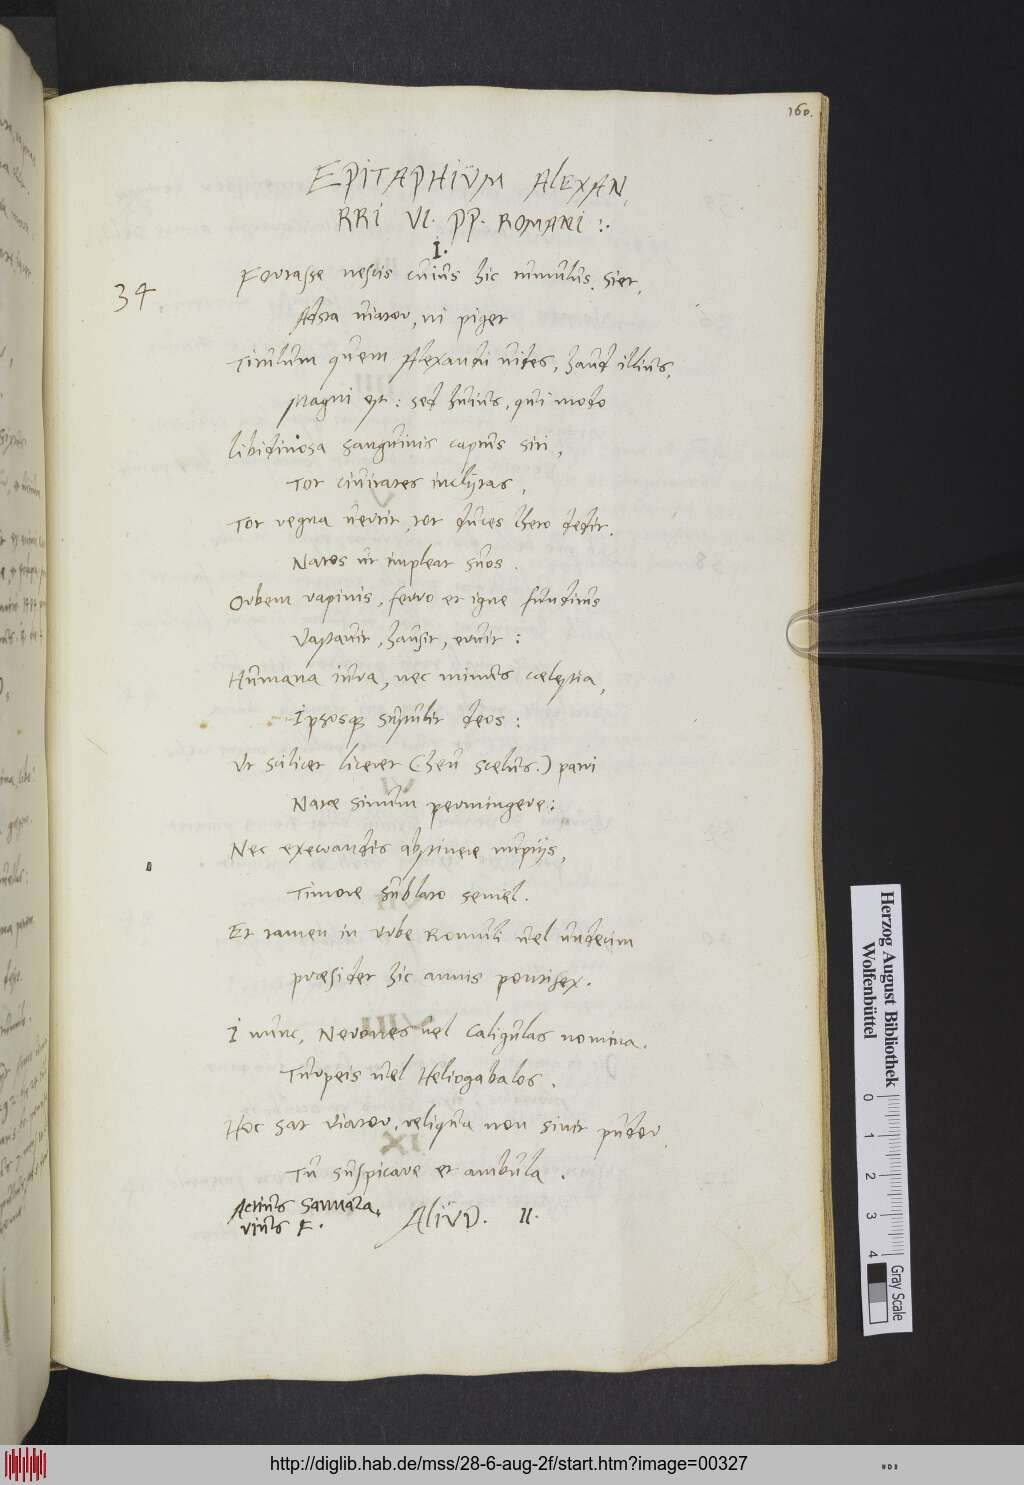 160.
EPITAPHIUM ALEXAN,
RRI VI. PP. ROMANI :.
I.
34
Fortasse nescis cuius hic tumulus siet,
Adsta viator, ni piget
Titulum quem Alexandri vides, haud illius,
Magni est : sed huius, qui modo
libidinosa sanguinis captus siti,
Tot civitates inclytas,
Tot regna vertit, tot duces letho dedit.
Natos ut impleat suos.
Orbem rapinis, ferro et igne funditus
Vastavit, hausit, eruit :
Humana iura, nec minus cælestia,
Ipsosq3 sustulit deos :
Ut scilicet liceret (heu scelus.) patri
Natæ sinum permingere :
Nec execrandis abstinere nuptijs,
Timore sublato semel.
Et tamen in urbe Romuli vel undecim
præsidet hic annis pontifex.
I nunc, Nerones vel Caligulas nomina.
Turpeis vel Heliogabalos.
Hoc sat viator, reliqua non sinit pudor
Tu suspicare et ambula.
Actius Sannaza,
rius F.
ALIUD. II.
Herzog August Bibliothek
Wolfenbüttel
0 1 2 3 4
Gray Scale
http://diglib.hab.de/mss/28-6-aug-2f/start.htm?image=00327